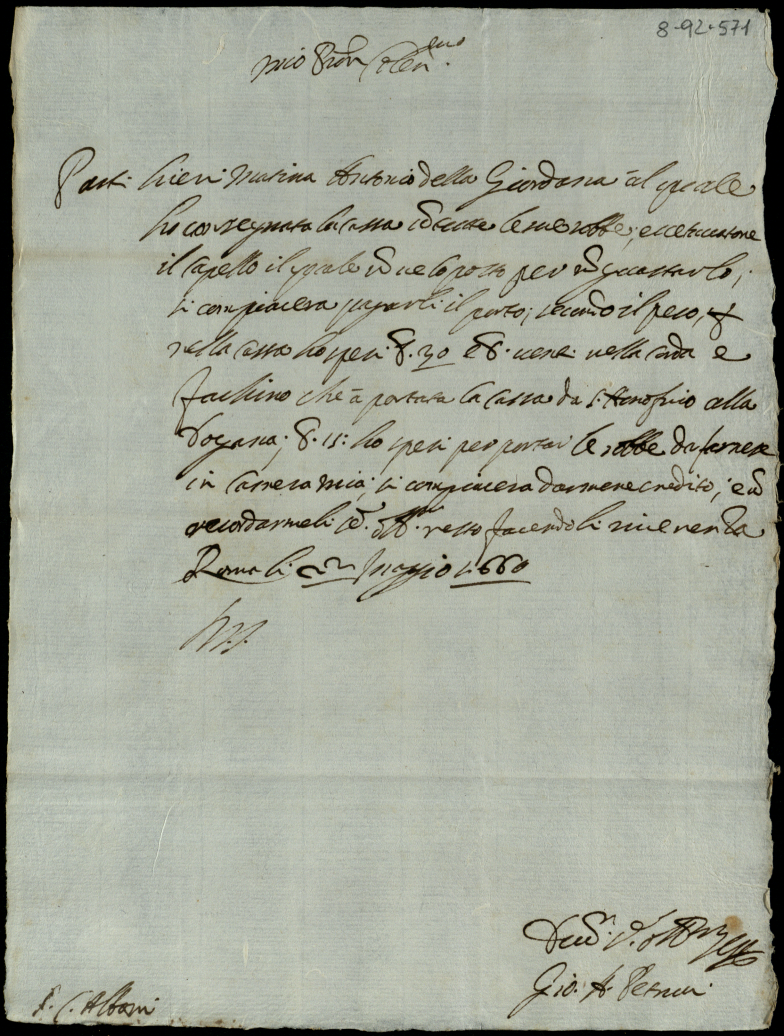 8-92-571
mio Sig.r
Partì hieri Matina Antonio della Giordana al quale
ho consegnata la cassa cō tutte le sue robbe, eccettuatone
il capello il quale nō ve lo posto per nō guastarlo,
si compiacerà pagarli il porto, secondo il peso,
nella cassa ho spesi 30 e venti nella corda e
fachino che à portata la cassa da S. Honofrio alla
Dogana; 15: ho spesi per portar le robbe da farnese
in Camera mia; si compiacerà darmene credito, e
recordarmeli resto facendoli riverenza
Roma li 22 Maggio 1660
V. S.
Gio. A. Petrucci
S. C. Albani